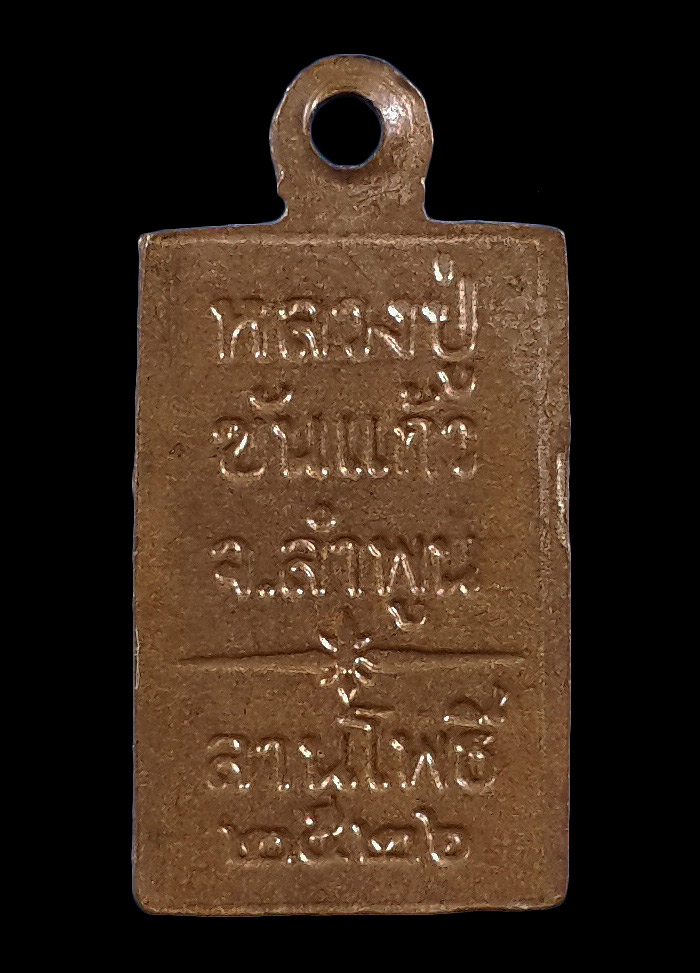 หลวงปู่
ขันแก้ว
จ.ลำพูน
ลานโพธิ์
๒๕๒๖